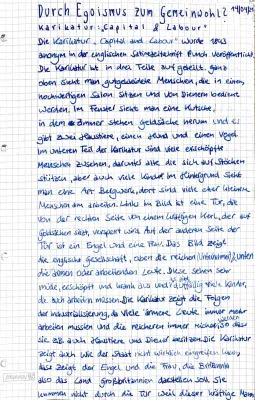 Durch Egoismus zum Gemeinwohl?
Karikatur: Capital & Labour"
Die Karikatur „Capital and Labour" wurde 1843
anonym in der englischen Satirezeitschrift Punch veröffentlicht.
Die Karikatur ist in drei Teile aufgeteilt. ganz
oben sieht man gutgekleidete Menschen, die in einem
hochwertigen Salon sitzen und von Dienern bedient
werden. Im Fenster sieht man eine Kutsche,
in dem Zimmer stehen Geldsäcke herum und es
gibt zwei Haustiere, einen Hund und einen Vogel
Im unteren Teil der Karikatur sind viele erschöpfte
Menschen zusehen, darunter alte die sich auf Stöcken
stützen, aber auch viele Kinder. Im Hintergrund sieht
man eine Art Bergwerk, dort sind viele eher kleinere
Menschen am arbeiten. Links im Bild ist eine Tür, die
von der rechten Seite von einem kräftigen Kerl, der auf
Geldsäcken sitzt, versperrt wird. Auf der anderen Seite der
Tür ist ein Engel und eine Frau. Das Bild zeigt
die englische Gesellschaft, oben die reichen (Unternehmer) & unten
die armen oder arbeitenden Leute. Diese sehen sehr
müde, erschöpft und krank aus und auffällig viele Kinder,
die auch arbeiten müssen. Die Karikatur zeigt die Folgen
der Industrialisierung, da viele ärmere Leute immer mehr
arbeiten müssen und die reicheren immer reicher, so dass
werden
sie auch Haustiere und Diener besitzen. Die Karikatur
zeigt auch wie der Staat nicht wirklich eingreifen kann,
dass zeigt der Engel und die Frau, die Britannia
also das Land Großbritannien darstellen soll. Sie
kommen nicht durch die Tür weil dieser kräftige Mann